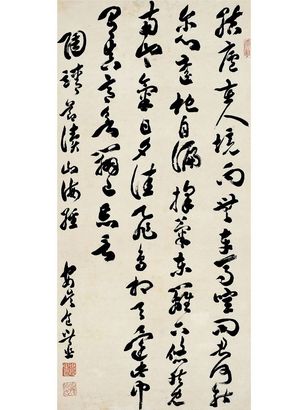 結廬在人境而無車馬喧問君何能
爾心遠地自偏採菊東籬下悠然見
南山山氣日夕佳飛鳥相與還此中
有真意欲辨已忘言
陶靖節讀山海經